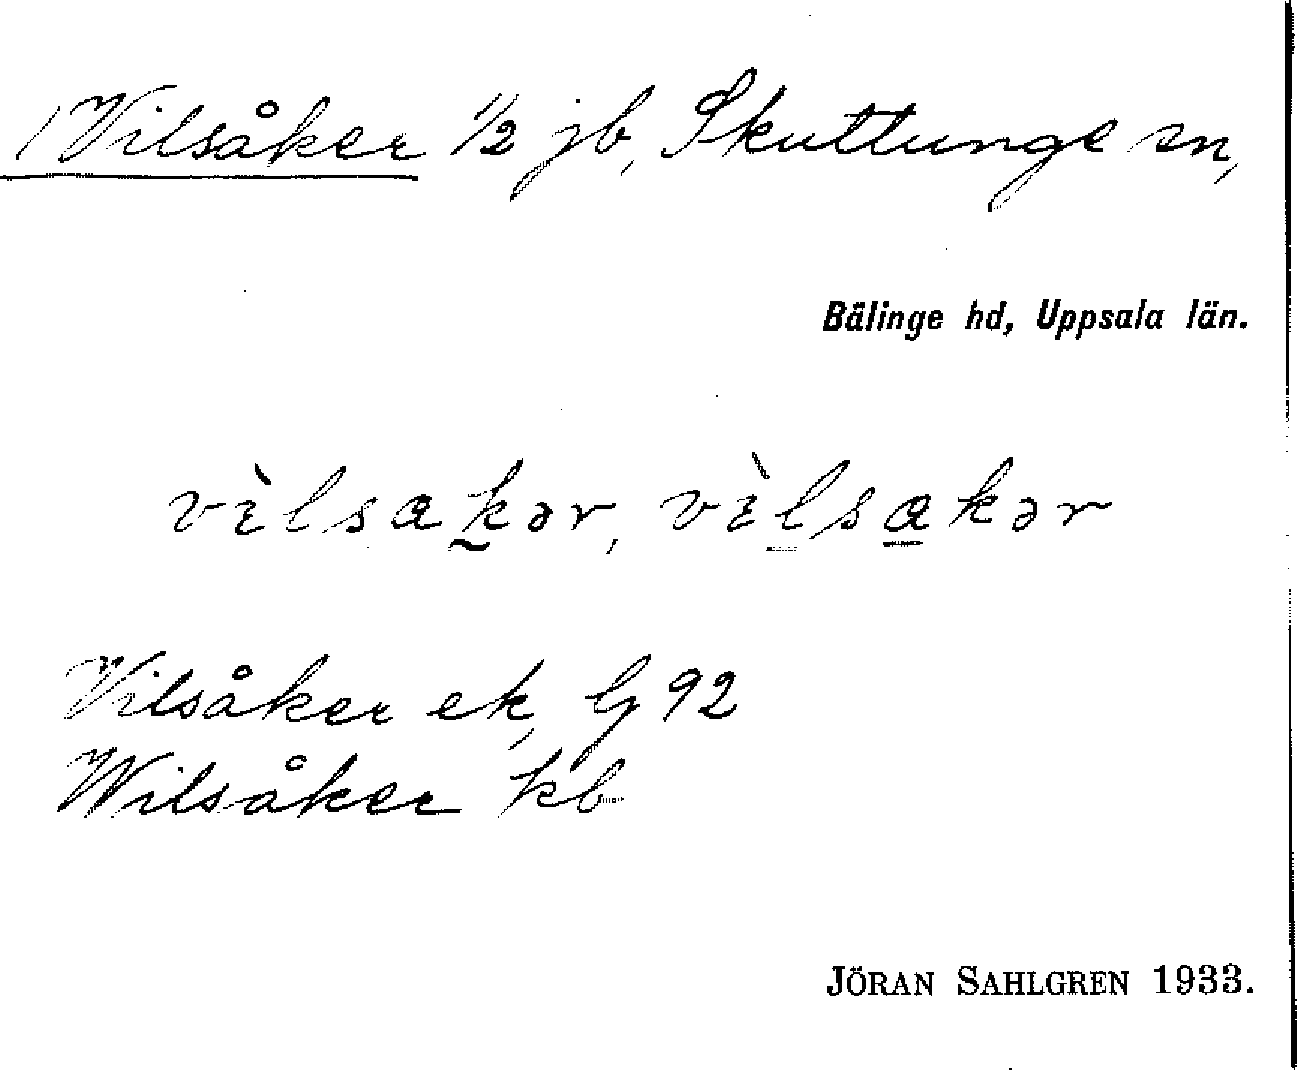 Vilsåker 1/2 jb, Skuttunge sn,
Bälinge hd, Uppsala län.
vìlsakər, vìlsakər
Vilsåker ek, G 92
Wilsåker kb
JÖRAN SAHLGREN 1933.